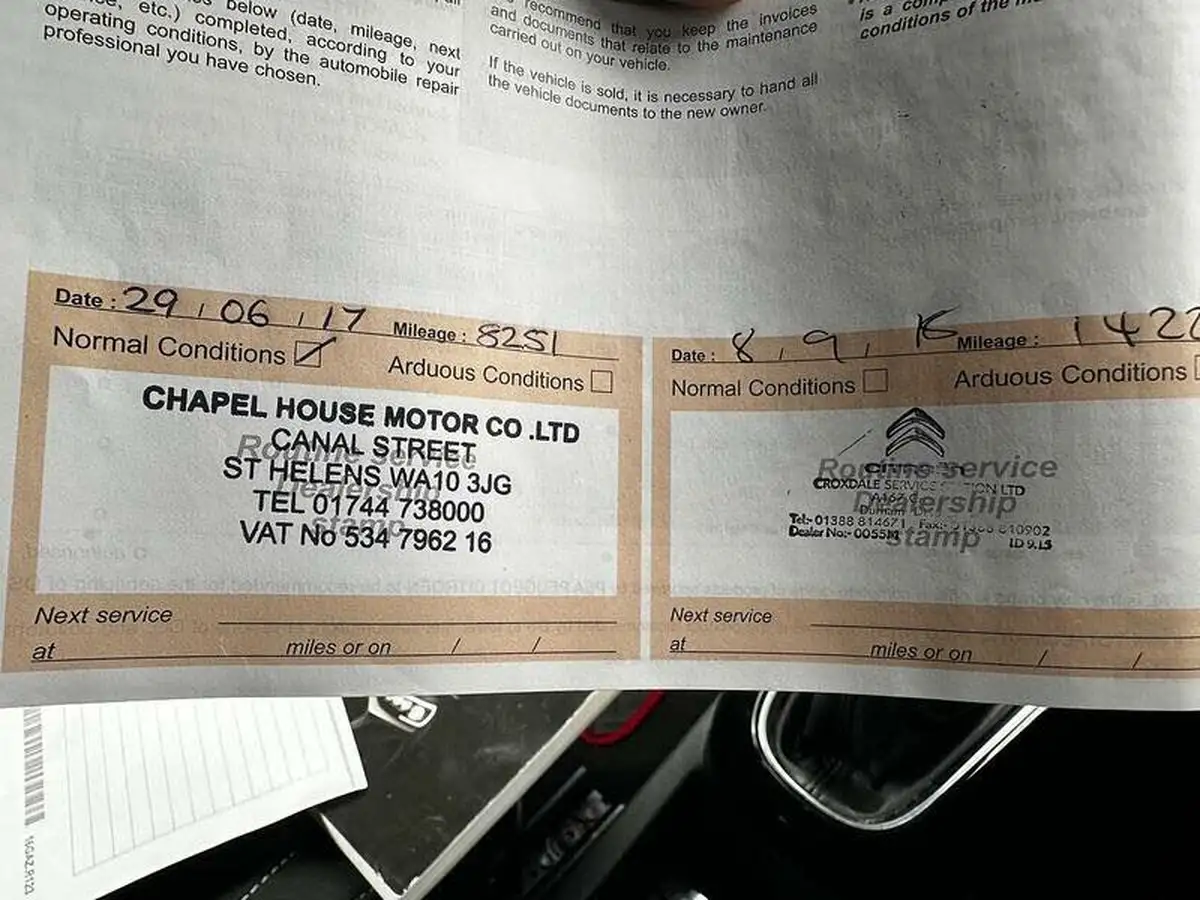 below (date, mileage, next
etc.) completed, according to your
operating conditions, by the automobile repair
professional you have chosen.
recommend that you keep the invoices
and documents that relate to the maintenance
carried out on your vehicle.
If the vehicle is sold, it is necessary to hand all
the vehicle documents to the new owner.
is a
conditions of the
Date : 29 / 06 / 17 Mileage : 8251
Normal Conditions
Arduous Conditions
Routine service
Dealership
stamp
CHAPEL HOUSE MOTOR CO .LTD
CANAL STREET
ST HELENS WA10 3JG
TEL 01744 738000
VAT No 534 7962 16
Next service
at miles or on / /
Date : 8 / 9 / Mileage : 1422
Normal Conditions
Arduous Conditions
Routine service
Dealership
stamp
CROXDALE LTD
Durham
Tel:- 01388 814671 Fax:-
Dealer No:-
ID 9.15
Next service
at miles or on / /